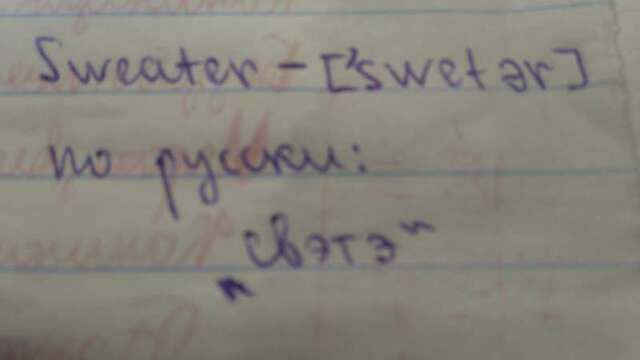 Sweater - ['swetər]
по русски:
„свэтэ"